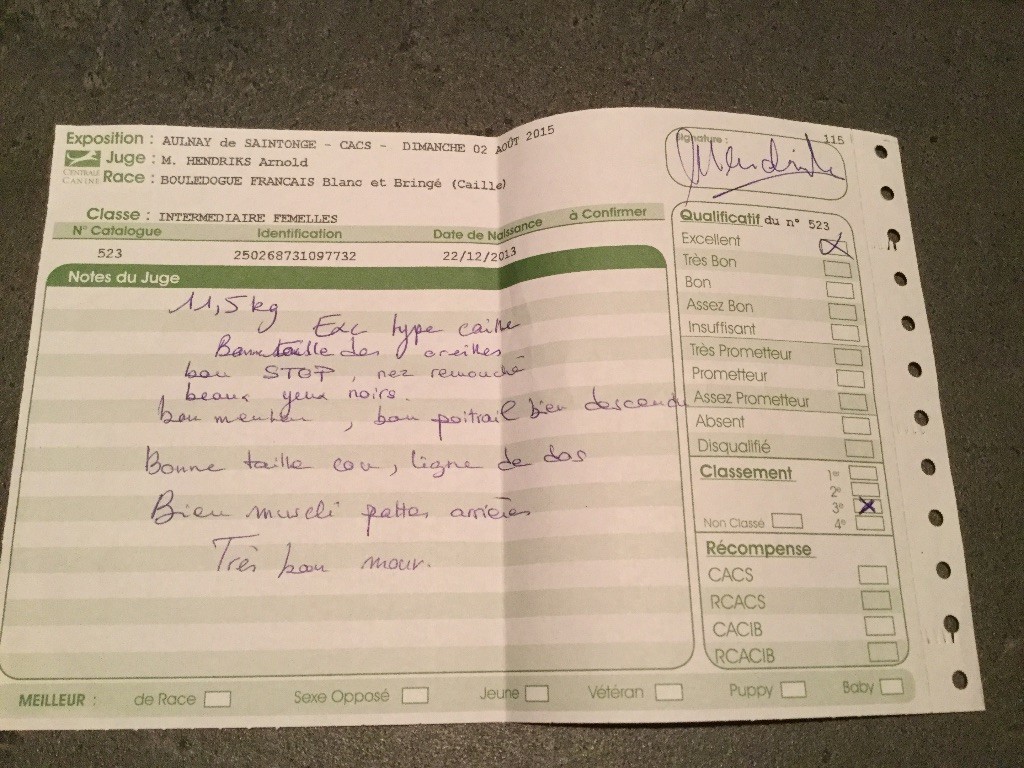 Exposition : AULNAY de SAINTONGE - CACS - DIMANCHE 02 AOÛT 2015
Juge : M. HENDRIKS Arnold
CENTRALE CANINE
Race : BOULEDOGUE FRANCAIS Blanc et Bringé (Caille)
Classe : INTERMEDIAIRE FEMELLES
N° Catalogue Identification Date de Naissance à Confirmer
523 250268731097732 22/12/2013
Notes du Juge
11,5 kg
Exc type caille
Bonne taille des oreilles
bon STOP, nez remouché
beaux yeux noirs.
bon menton, bon poitrail bien descendu
Bonne taille cou, ligne de dos
Bien musclé pattes arrières
Très bon mouv.
Signature : 115
Qualificatif du n° 523
Excellent X
Très Bon
Bon
Assez Bon
Insuffisant
Très Prometteur
Prometteur
Assez Prometteur
Absent
Disqualifié
Classement 1er
2e
3e X
Non Classé 4e
Récompense
CACS
RCACS
CACIB
RCACIB
MEILLEUR : de Race Sexe Opposé Jeune Vétéran Puppy Baby